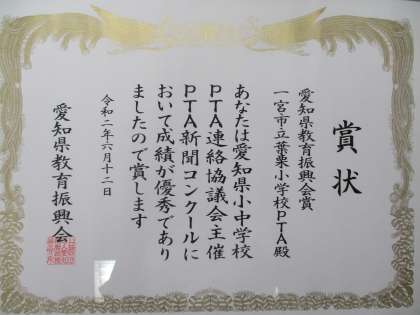 賞状
愛知県教育振興会賞
一宮市立葉栗小学校PTA殿
あなたは愛知県小中学校
PTA連絡協議会主催
PTA新聞コンクールに
おいて成績が優秀であり
ましたので賞します
令和二年六月十二日
愛知県教育振興会